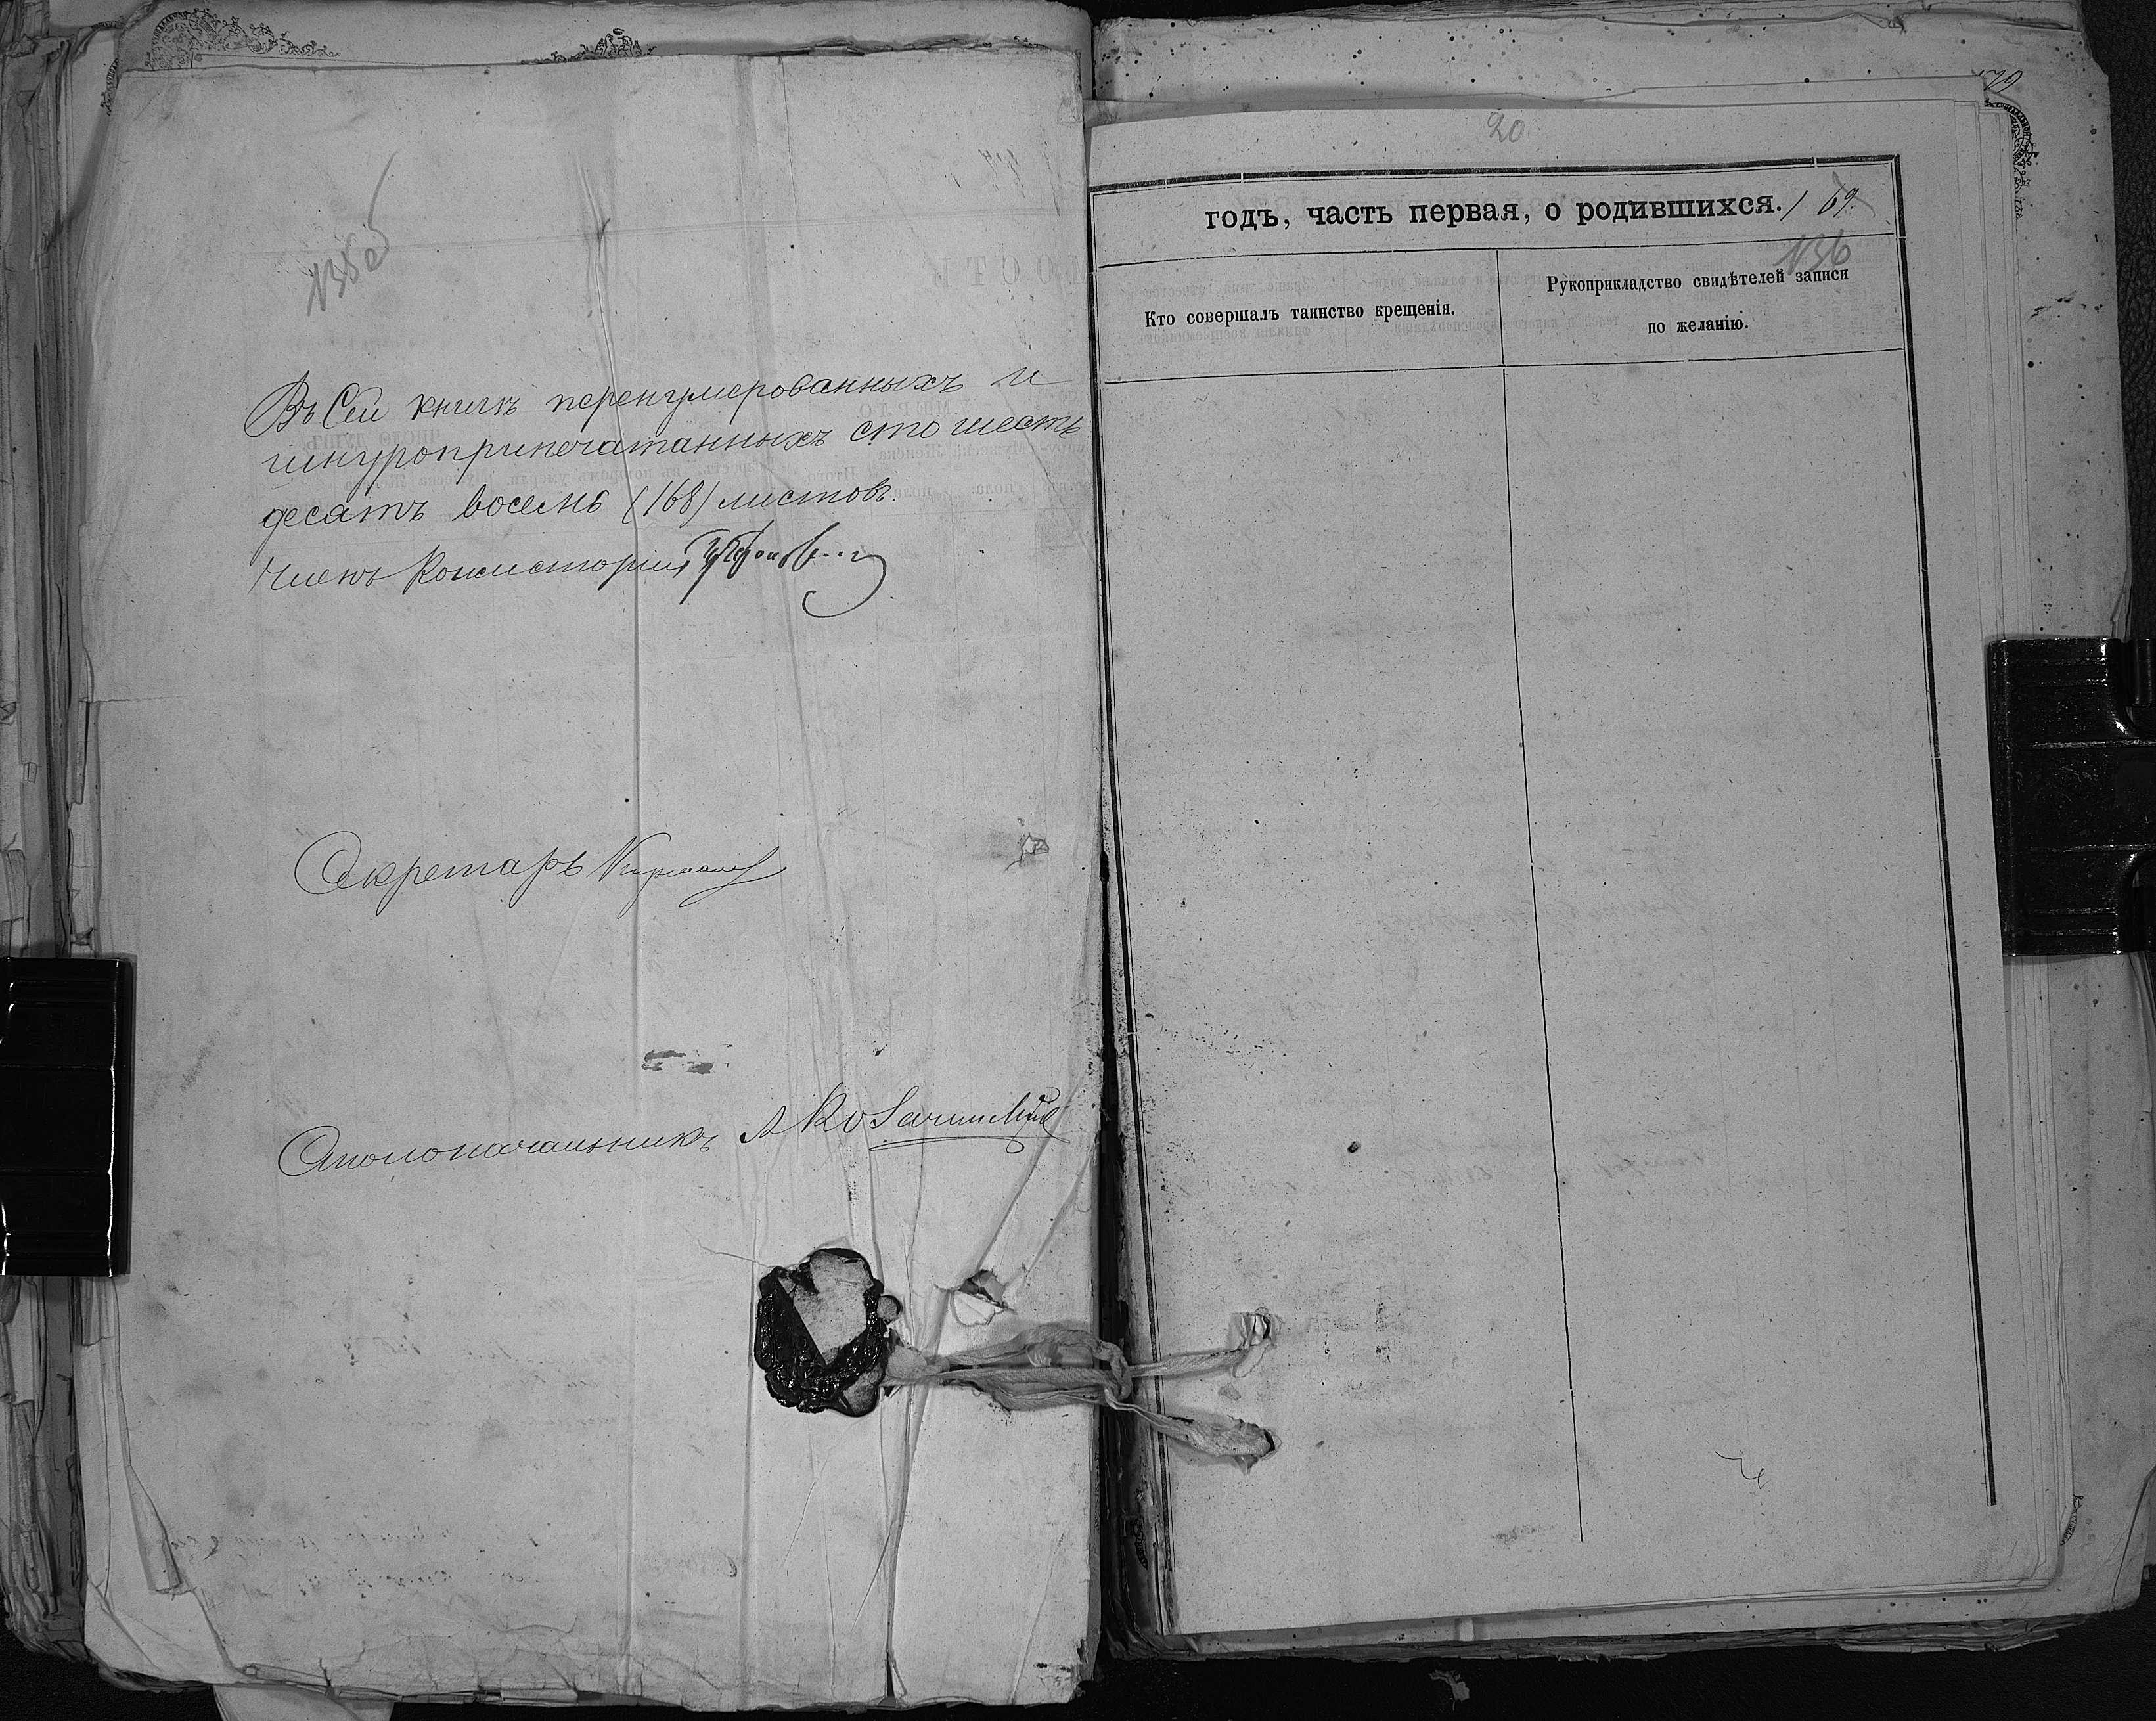 Въ Сей книгѣ перенумерованныхъ и
шнуроприпечатанныхъ сто шесть
десятъ восемь (168) листовъ.
Членъ Консисторіи
Секретарь
Столоначальникъ
20
годъ, часть первая, о родившихся. 169.
№36
Кто совершалъ таинство крещенія.
Рукоприкладство свидѣтелей записи
по желанію.